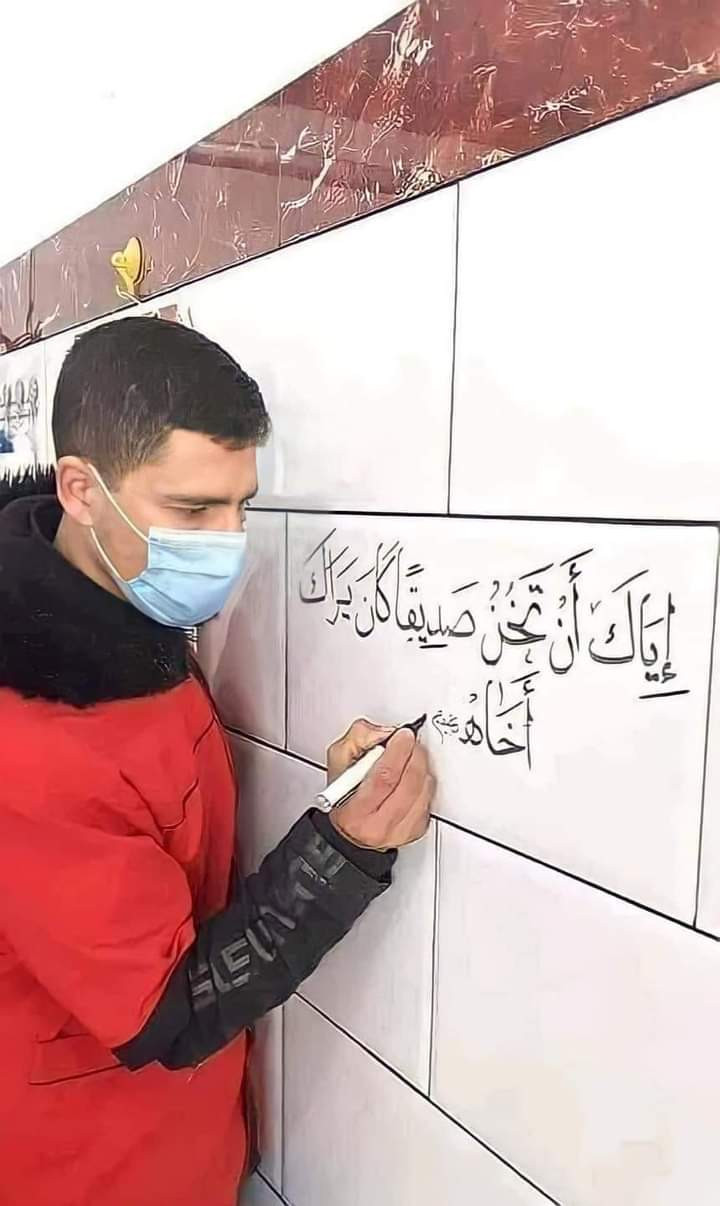 إِيَاكَ أَنْ تَخُنْ صَدِيقًا كَانَ يَرَاكَ
أَخَاهْ